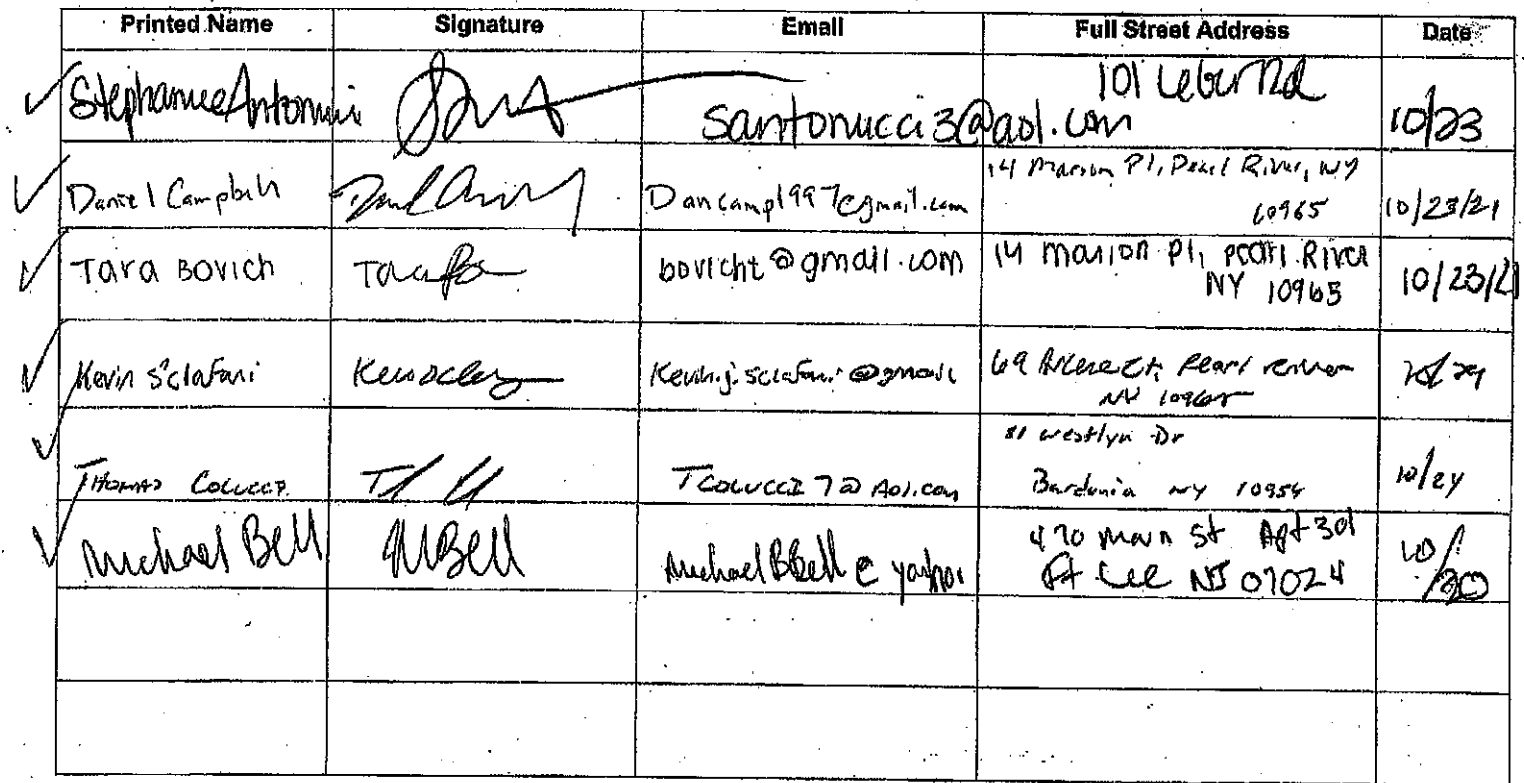 Printed Name Signature Email Full Street Address Date
Stephanie Antonucci santonucci3@aol.com 101 Leber Rd 10/23
Daniel Campbell Dancamp1997@gmail.com 14 Marion Pl, Pearl River, NY
10965 10/23/21
Tara Bovich bovicht@gmail.com 14 Marion Pl, Pearl River
NY 10965 10/23/21
Kevin Sclafani Kevin.j.sclafani@gmail 69 Ct, Pearl River
NY 10965
Thomas Colucci TColucci7@Aol.com 81 Westlyn Dr
Bardonia NY 10954 10/24
Michael Bell MBell MichaelBBell@yahoo 470 Main St Apt 301
Ft Lee NJ 07024 10/30